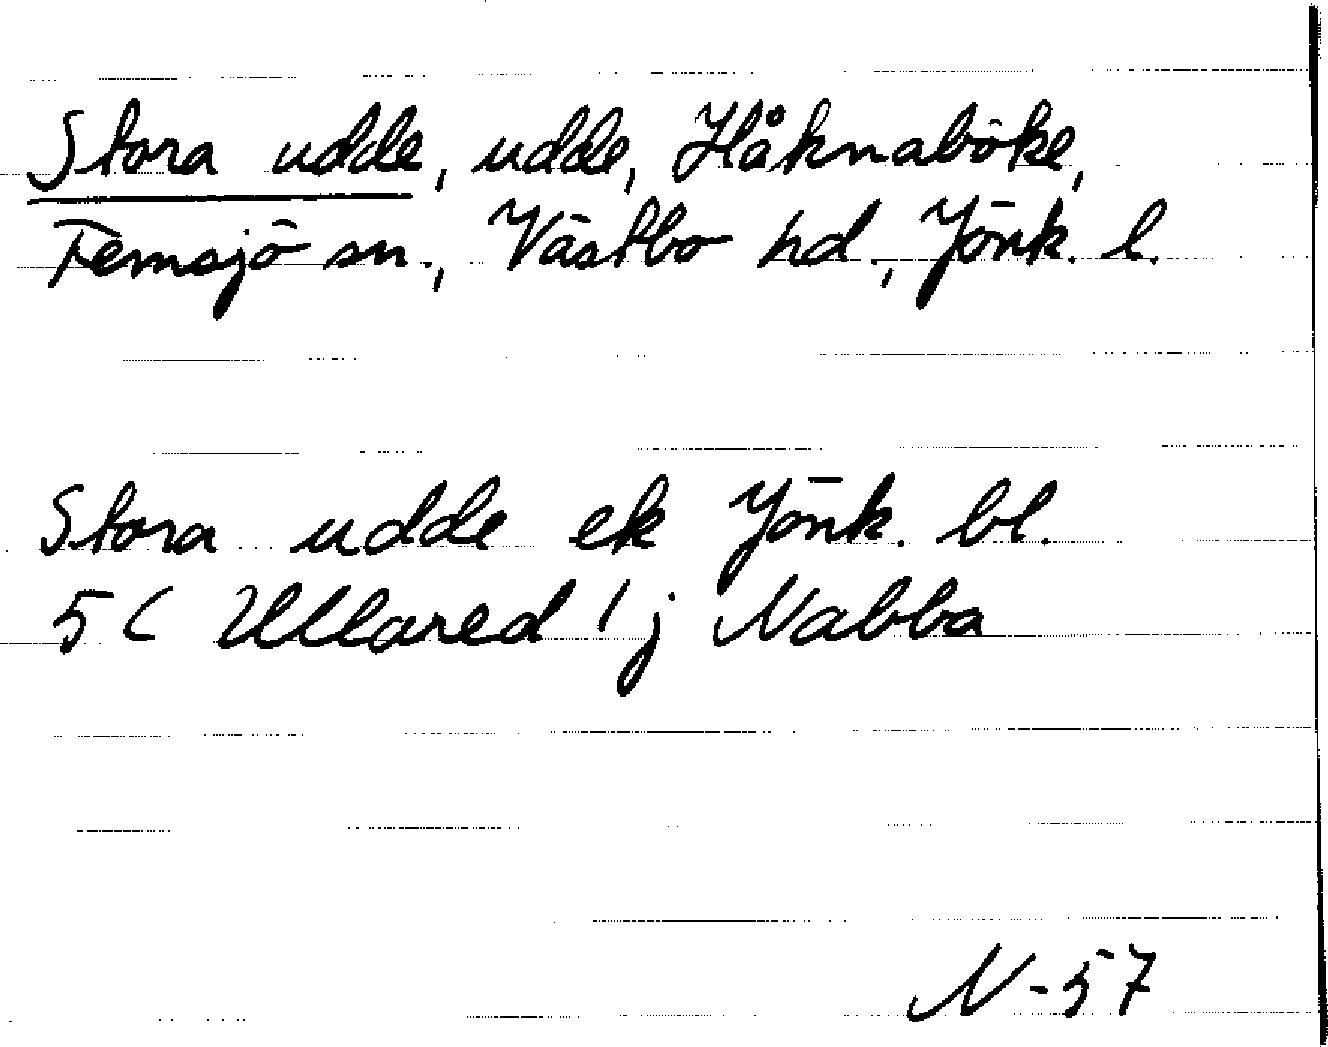 Stora udde, udde, Håknaböke,
Femsjö sn., Västbo hd., Jönk. l.
Stora udde ek Jönk. bl.
5 ( Ullared ) ; Nabba
N-57